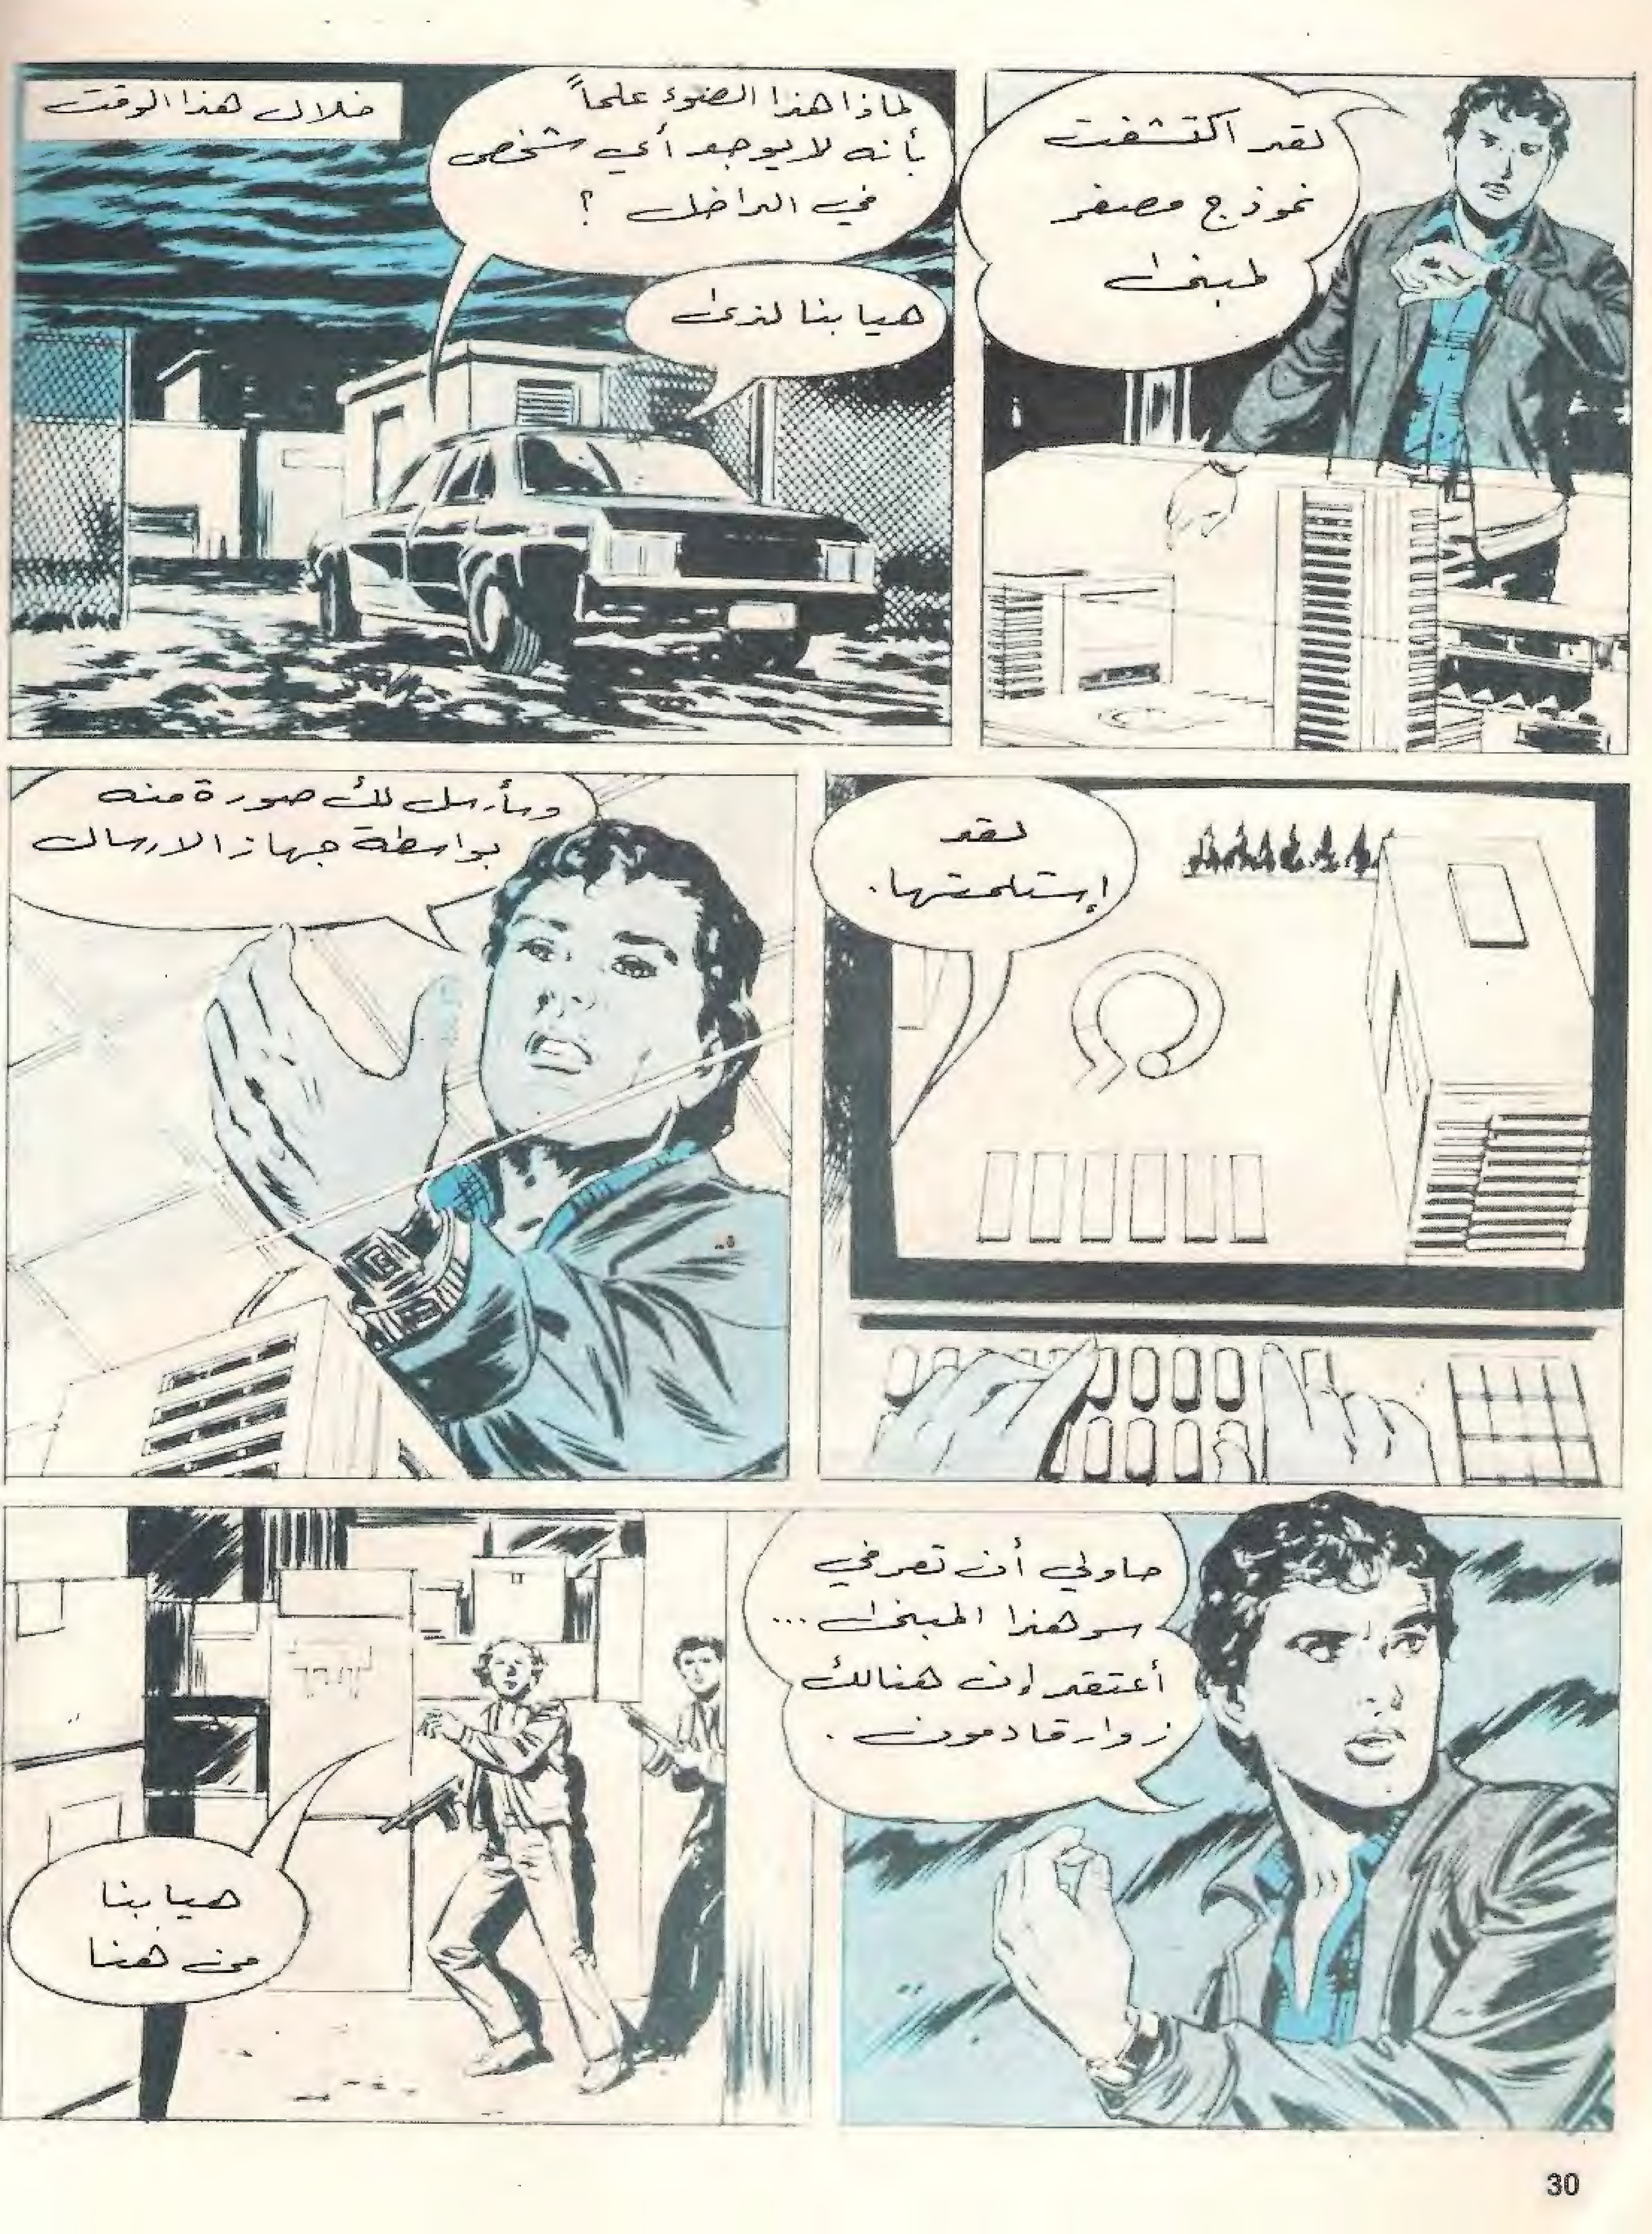 لقد اكتشفت
نموذج مصغر
لمبنى
خلال هذا الوقت
لماذا هذا الضوء علماً
بأنه لا يوجد أي شخص
في الداخل ؟
هيا بنا لنرى
لقد
إستلمتها.
وسأرسل لك صورة منه
بواسطة جهاز الارسال
حاولي أن تعرفي
سر هذا المبنى ...
أعتقد إن هنالك
زوار قادمون .
هيا بنا
من هنا
30